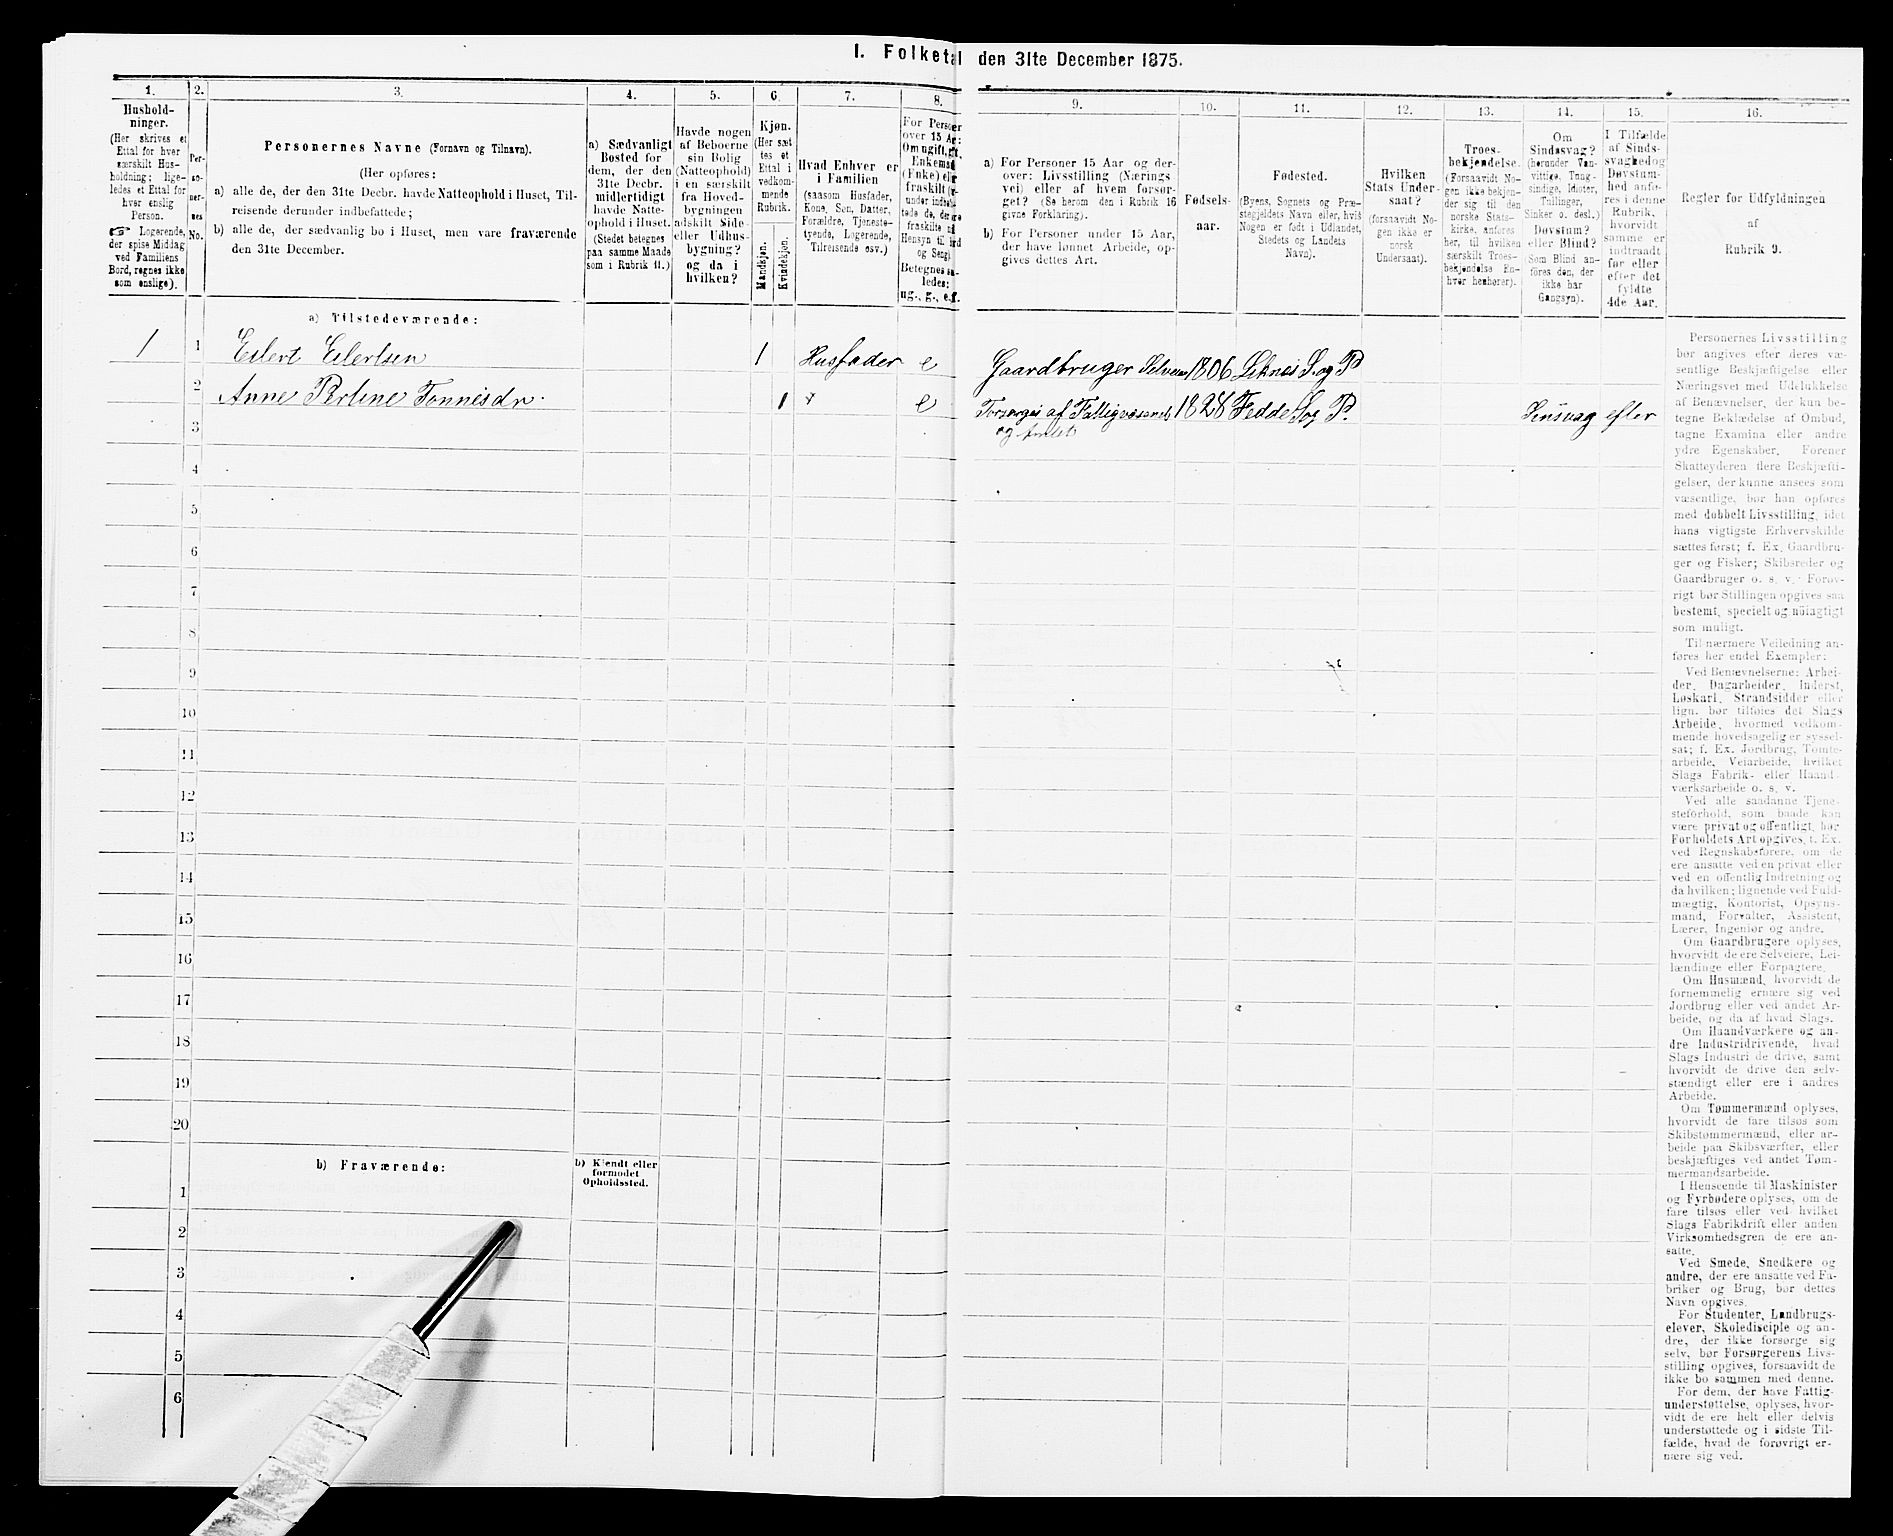 I. Folketal den 31te December 1875.
1.
Hushold-
ninger.
(Her skrives et
Ettal for hver
særskilt Hus-
holdning; lige-
ledes et Ettal for
hver enslig
Person.
☞ Logerende,
der spise Middag
ved Familiens
Bord, regnes ikke
som enslige).
2.
Per-
so-
ner-
nes
No.
3.
Personernes Navne (Fornavn og Tilnavn).
(Her opføres:
a) alle de, der den 31te Decbr. havde Natteophold i Huset, Til-
reisende derunder indbefattede;
b) alle de, der sædvanlig bo i Huset, men vare fraværende
den 31te December.
4.
a) Sædvanligt
Bosted for
dem, der den
31te Decbr.
midlertidigt
havde Natte-
ophold i Huset.
(Stedet betegnes
paa samme Maade
som i Rubrik 11.)
5.
Havde nogen
af Beboerne
sin Bolig
(Natteophold)
i en særskilt
fra Hoved-
bygningen
adskilt Side-
eller Udhus-
bygning?
og da i
hvilken?
6.
Kjøn.
(Her sæt
tes et
Ettal i
vedkom-
mende
Rubrik.
Mandkjøn.
Kvindekjøn.
7.
Hvad Enhver er
i Familien
(saasom Husfader,
Kone, Søn, Datter,
Forældre, Tjeneste-
tyende, Logerende,
Tilreisende osv.)
8.
For Personer
over 15 Aar:
Om ugift, gift,
Enkemand
(Enke) eller
fraskilt
Betegnes saa-
ledes:
ug., g., e., f.
9.
a) For Personer 15 Aar og der-
over: Livsstilling (Nærings-
vei) eller af hvem forsør-
get? (Se herom den i Rubrik 16
givne Forklaring).
b) For Personer under 15 Aar,
der have lønnet Arbeide, op-
gives dettes Art.
10.
Fødsels-
aar.
11.
Fødested.
(Byens, Sognets og Præ-
stegjeldets Navn eller, hvis
Nogen er født i Udlandet,
Stedets og Landets
Navn).
12.
Hvilken
Stats Under-
saat?
(forsaavidt No-
gen ikke er
norsk
Undersaat).
13.
Troes-
bekjendelse.
(Forsaavidt No-
gen ikke bekjen-
der sig til den
norske Stats-
kirke, anføres
her, til hvilken
særskilt Troes-
bekjendelse En-
hver henhører).
14.
Om
Sindssvag?
(herunder Van-
vittige, Tung-
sindige, Idioter,
Tullinger,
Sinker o. desl.)
Døvstum?
eller Blind?
(Som Blind an-
føres den, der
ikke har
Gangsyn).
15.
I Tilfælde
af Sinds-
svaghed og
Døvstum-
hed anfø-
res i denne
Rubrik,
hvorvidt
samme er
indtraadt
før eller
efter det
fyldte
4de Aar.
16.
Regler for Udfyldningen
af
Rubrik 9.
a) Tilstedeværende:
1 1 Eilert Eilertsen 1 Husfader e Gaardbruger Selveier 1806 Liknes S. og P
2 Anne Perline Tonnesdr. 1 e Forsørges af Fattigvæsenet 1828 Fedde S og P. Sinsvag efter
og Andet
3
4
5
6
7
8
9
10
11
12
13
14
15
16
17
18
19
20
b) Fraværende:
b) Kjendt eller
formodet
Opholdssted.
1
2
3
4
5
6
Personernes Livsstilling
bør angives efter deres væ-
sentlige Beskjæftigelse eller
Næringsvei med Udelukkelse
af Benævnelser, der kun be-
tegne Beklædelse af Ombud,
tagne Examina eller andre
ydre Egenskaber. Forener
Skatteyderen flere Beskjæfti-
gelser, der kunne ansees som
væsentlige, bør han opføres
med dobbelt Livsstilling, idet
hans vigtigste Erhvervskilde
sættes først; f. Ex. Gaardbru-
ger og Fisker; Skibsreder og
Gaardbruger o. s. v. Forøv-
rigt bør Stillingen opgives saa
bestemt, specielt og nöiagtigt
som muligt.
Til nærmere Veiledning an-
føres her endel Exempler:
Ved Benævnelserne: Arbei-
der, Dagarbeider, Inderst,
Løskarl, Strandsidder eller
lign. bør tilføies det Slags
Arbeide, hvormed vedkom-
mende hovedsagelig er syssel-
sat; f. Ex. Jordbrug, Tomte-
arbeide, Veiarbeide, hvilket
Slags Fabrik- eller Haand-
værksarbeide o. s. v.
Ved alle saadanne Tjene-
steforhold, som baade kan
være privat og offentligt, bør
Forholdets Art opgives, t. Ex.
ved Regnskabsførere, om de
ere ansatte ved en privat eller
ved en offentlig Indretning og
da hvilken; lignende ved Fuld-
mægtig, Kontorist, Opsyns-
mand, Forvalter, Assistent,
Lærer, Ingeniør og andre.
Om Gaardbrugere oplyses,
hvorvidt de ere Selveiere, Lei-
lændinge eller Forpagtere.
Om Husmænd, hvorvidt de
fornemmelig ernære sig ved
Jordbrug eller ved andet Ar-
beide, og da af hvad Slags.
Om Haandværkere og an-
dre Industridrivende, hvad
Slags Industri de drive, samt
hvorvidt de drive den selv-
stændigt eller ere i andres
Arbeide.
Om Tømmermænd oplyses,
hvorvidt de fare tilsøs som
Skibstømmermænd, eller ar-
beide paa Skibsværfter, eller
beskjæftiges ved andet Tøm-
mermandsarbeide.
I Henseende til Maskinister
og Fyrbødere oplyses, om de
fare tilsøs eller ved hvilket
Slags Fabrikdrift eller anden
Virksomhedsgren de ere an-
satte.
Ved Smede, Snedkere og
andre, der ere ansatte ved Fa-
briker og Brug, bør dettes
Navn opgives.
For Studenter, Landbrugs-
elever, Skoledisciple og an-
dre, der ikke forsørge sig
selv, bør Forsørgerens Livs-
stilling opgives, forsaavidt de
ikke bo sammen med denne.
For dem, der have Fattig-
understøttelse, oplyses, hvor-
vidt de ere helt eller delvis
understøttede og i sidste Til-
fælde, hvad de forøvrigt er-
nære sig ved.